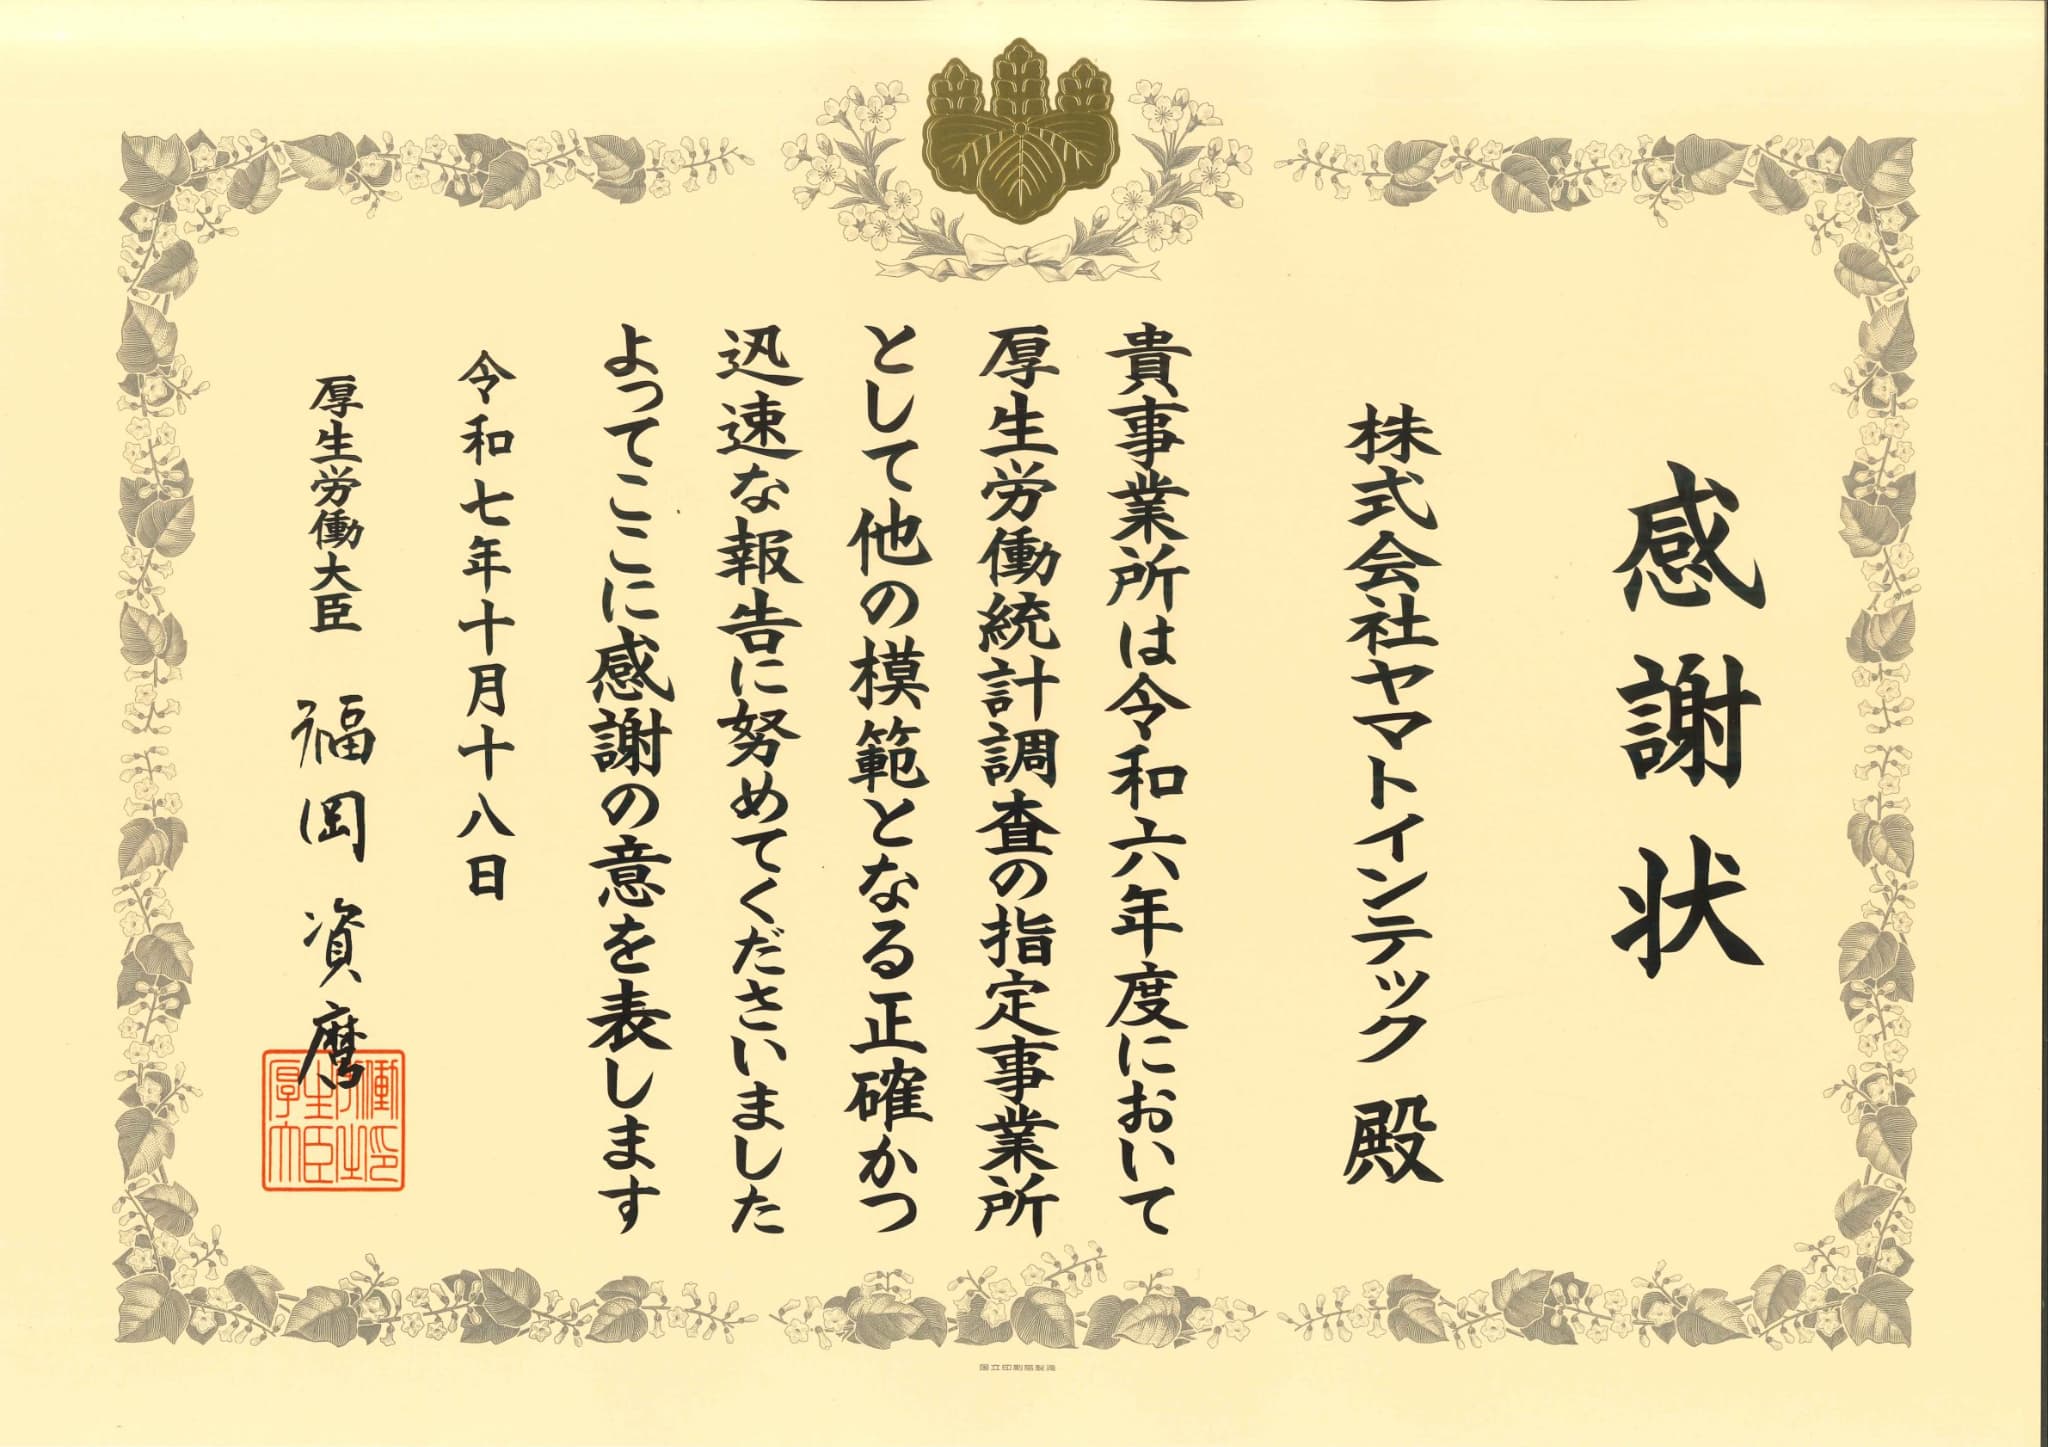 感謝状
株式会社ヤマトインテック 殿
貴事業所は令和六年度において
厚生労働統計調査の指定事業所
として他の模範となる正確かつ
迅速な報告に努めてくださいました
よってここに感謝の意を表します
令和七年十月十八日
厚生労働大臣 福岡資麿
国立印刷局製造